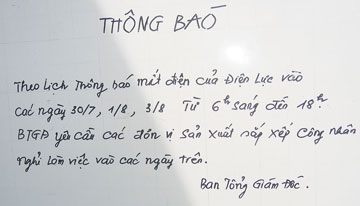 THÔNG BÁO
Theo Lịch Thông báo mất điện của Điện Lực vào
các ngày 30/7, 1/8, 3/8 Từ 6h sáng đến 18h.
BTGĐ yêu cầu các đơn vị sản xuất sắp xếp công nhân
nghỉ làm việc vào các ngày trên.
Ban Tổng Giám Đốc.